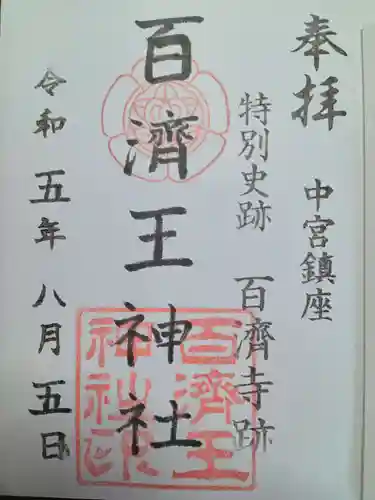 奉拝
中宮鎮座
特別史跡 百濟寺跡
百濟王神社
令和五年八月五日
百濟王
神社印